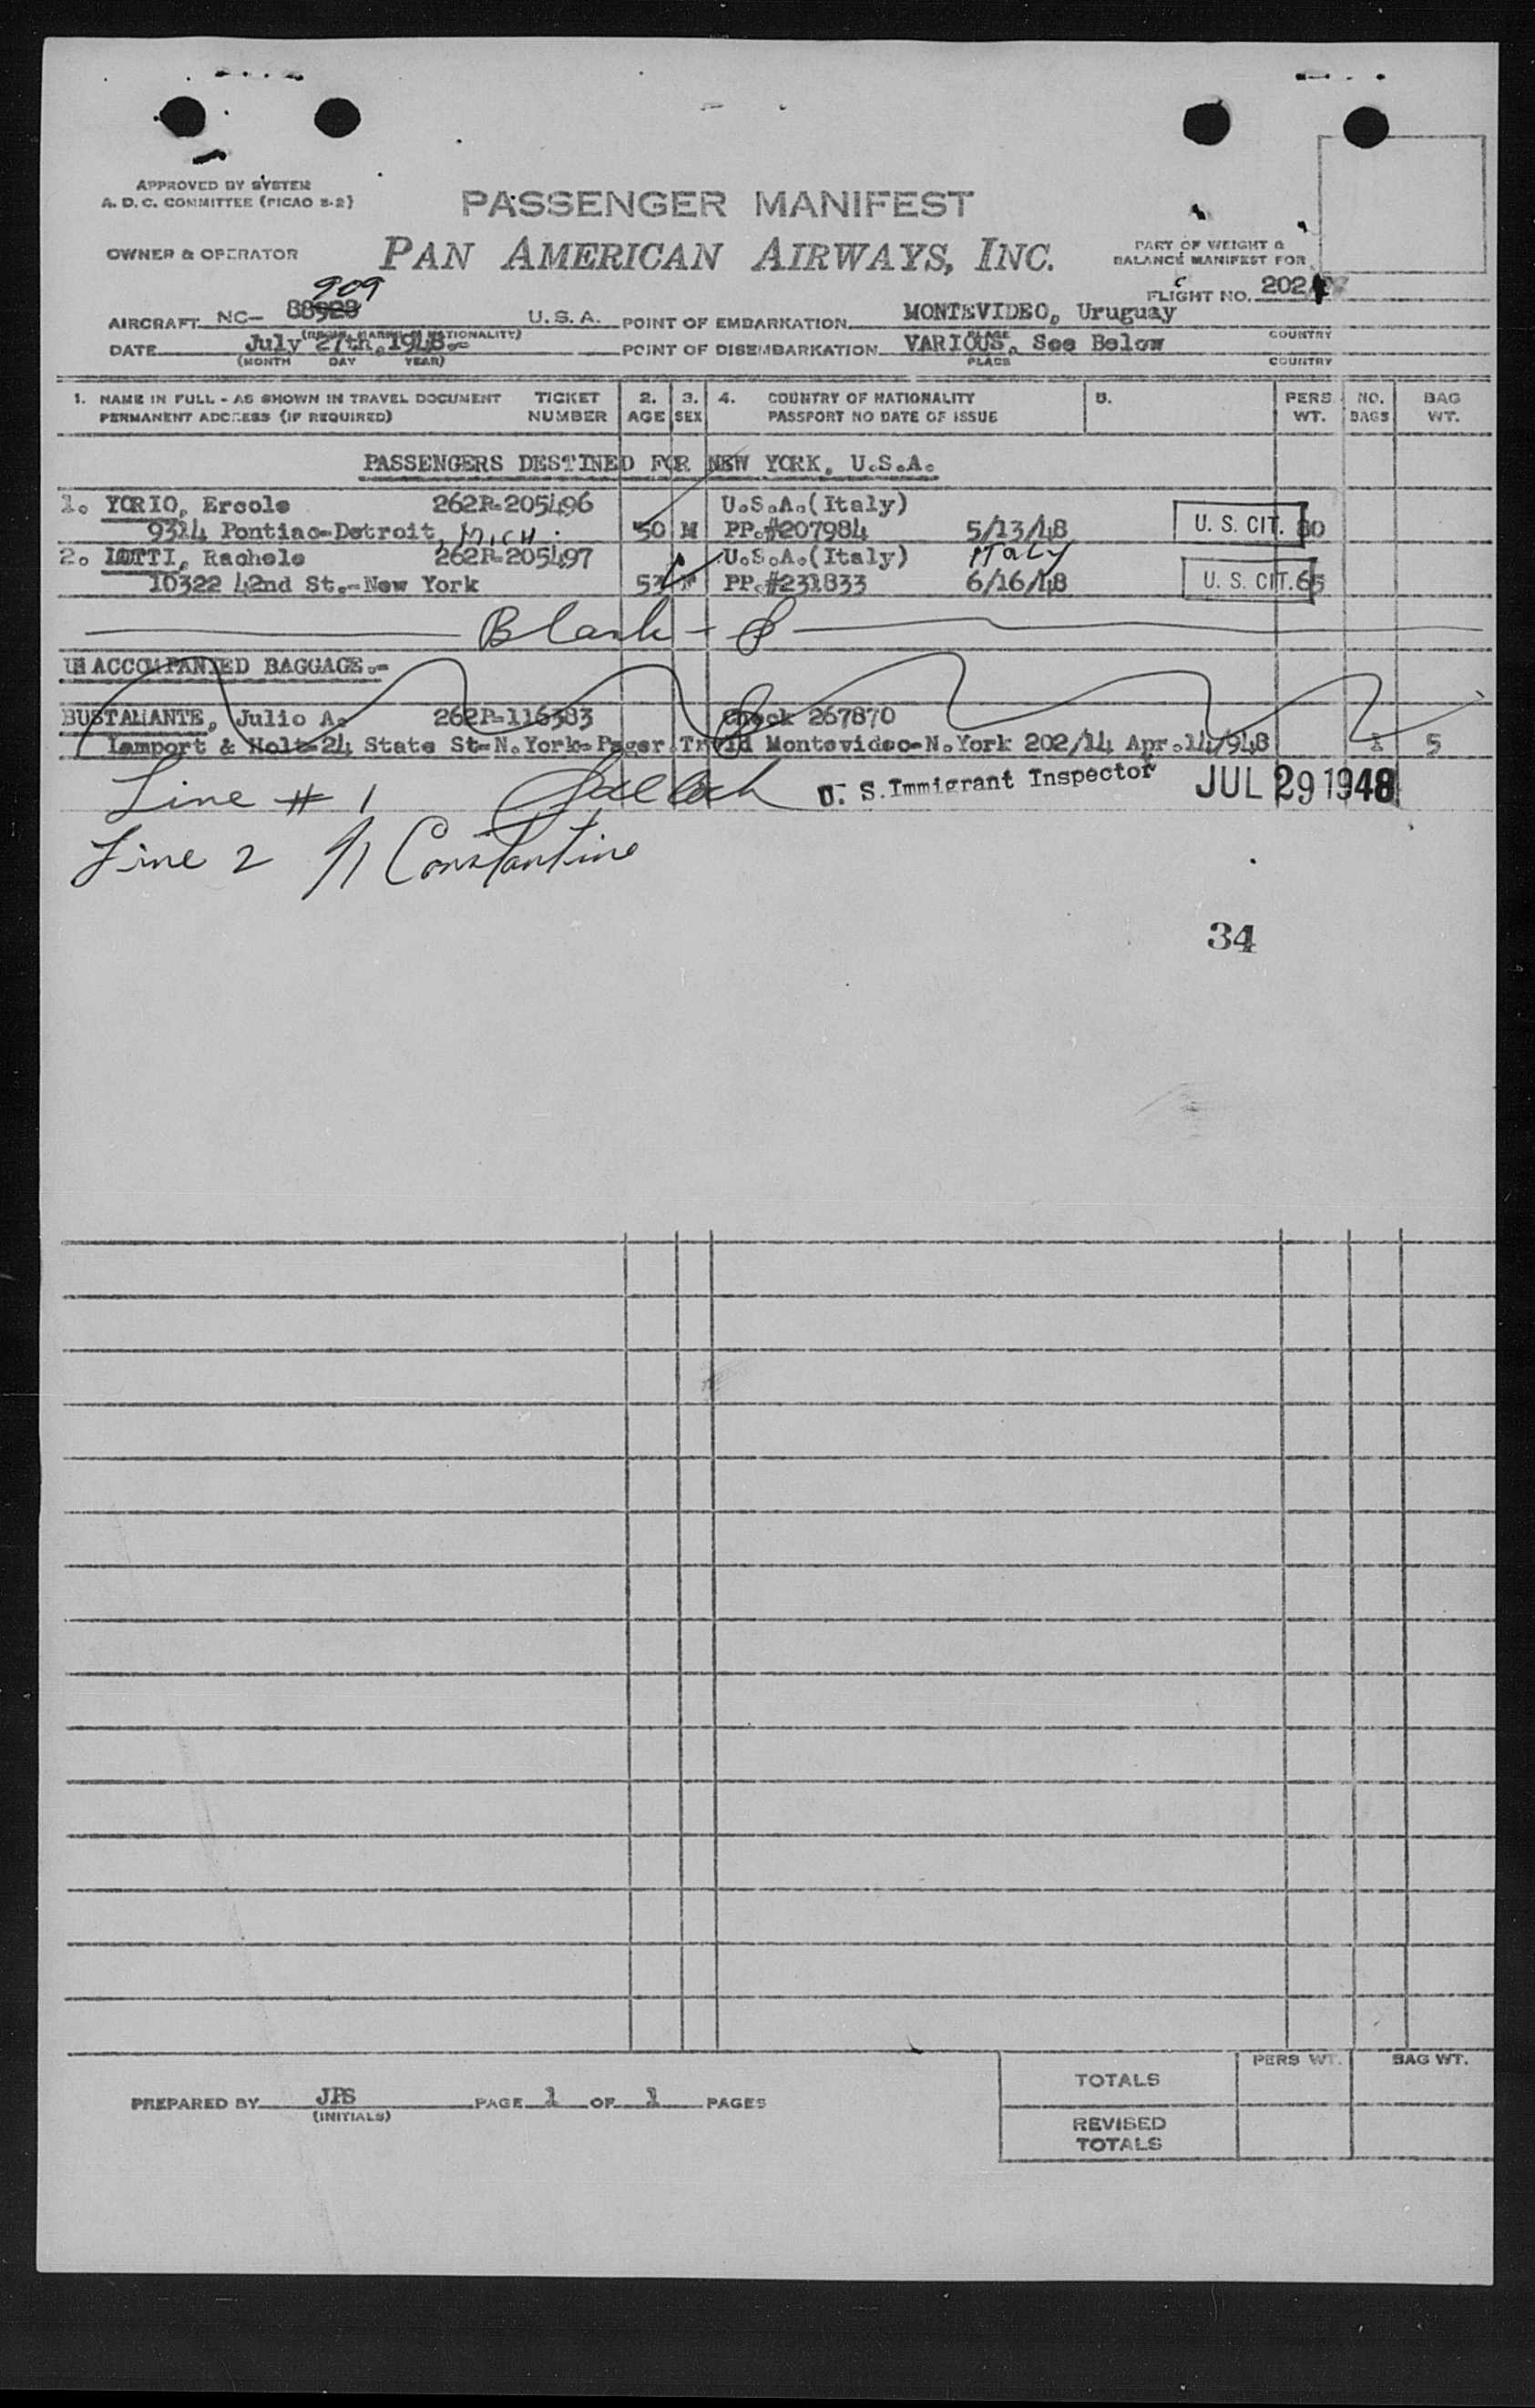 APPROVED BY SYSTEM
A. D. C. COMMITTEE (PICAO S-2)
PASSENGER MANIFEST
OWNER & OPERATOR PAN AMERICAN AIRWAYS, INC.
PART OF WEIGHT & BALANCE MANIFEST FOR
FLIGHT NO. 202
909
AIRCRAFT NC- 88928 U.S.A. POINT OF EMBARKATION MONTEVIDEO, Uruguay
PLACE COUNTRY
DATE July 27th, 1948.- POINT OF DISEMBARKATION VARIOUS, See Below
(MONTH DAY YEAR) PLACE COUNTRY
1. NAME IN FULL - AS SHOWN IN TRAVEL DOCUMENT TICKET 2. 3. 4. COUNTRY OF NATIONALITY 5. PERS NO. BAG
PERMANENT ADDRESS (IF REQUIRED) NUMBER AGE SEX PASSPORT NO DATE OF ISSUE WT. BAGS WT.
PASSENGERS DESTINED FOR NEW YORK, U.S.A.
1. YORIO, Ercole 262R-205496 U.S.A.(Italy)
9314 Pontiac-Detroit, MICH. 50 M PP.#207984 5/13/48 U. S. CIT. 80
2. IOTTI, Rachele 262R-205497 U.S.A.(Italy) ITALY
10322 42nd St.-New York 53 F PP.#231833 6/16/48 U. S. CIT. 65
Blank
UNACCOMPANIED BAGGAGE.-
BUSTAMANTE, Julio A. 262P-116383 Check 267870
Lamport & Holt-24 State St-N.York-Pager Montevideo-N.York 202/14 Apr.14/948 1 5
Line # 1 U. S. Immigrant Inspector JUL 29 1948
Line 2 Constantine
34
TOTALS PERS WT. BAG WT.
PREPARED BY JPS PAGE 1 OF 1 PAGES
(INITIALS)
REVISED
TOTALS